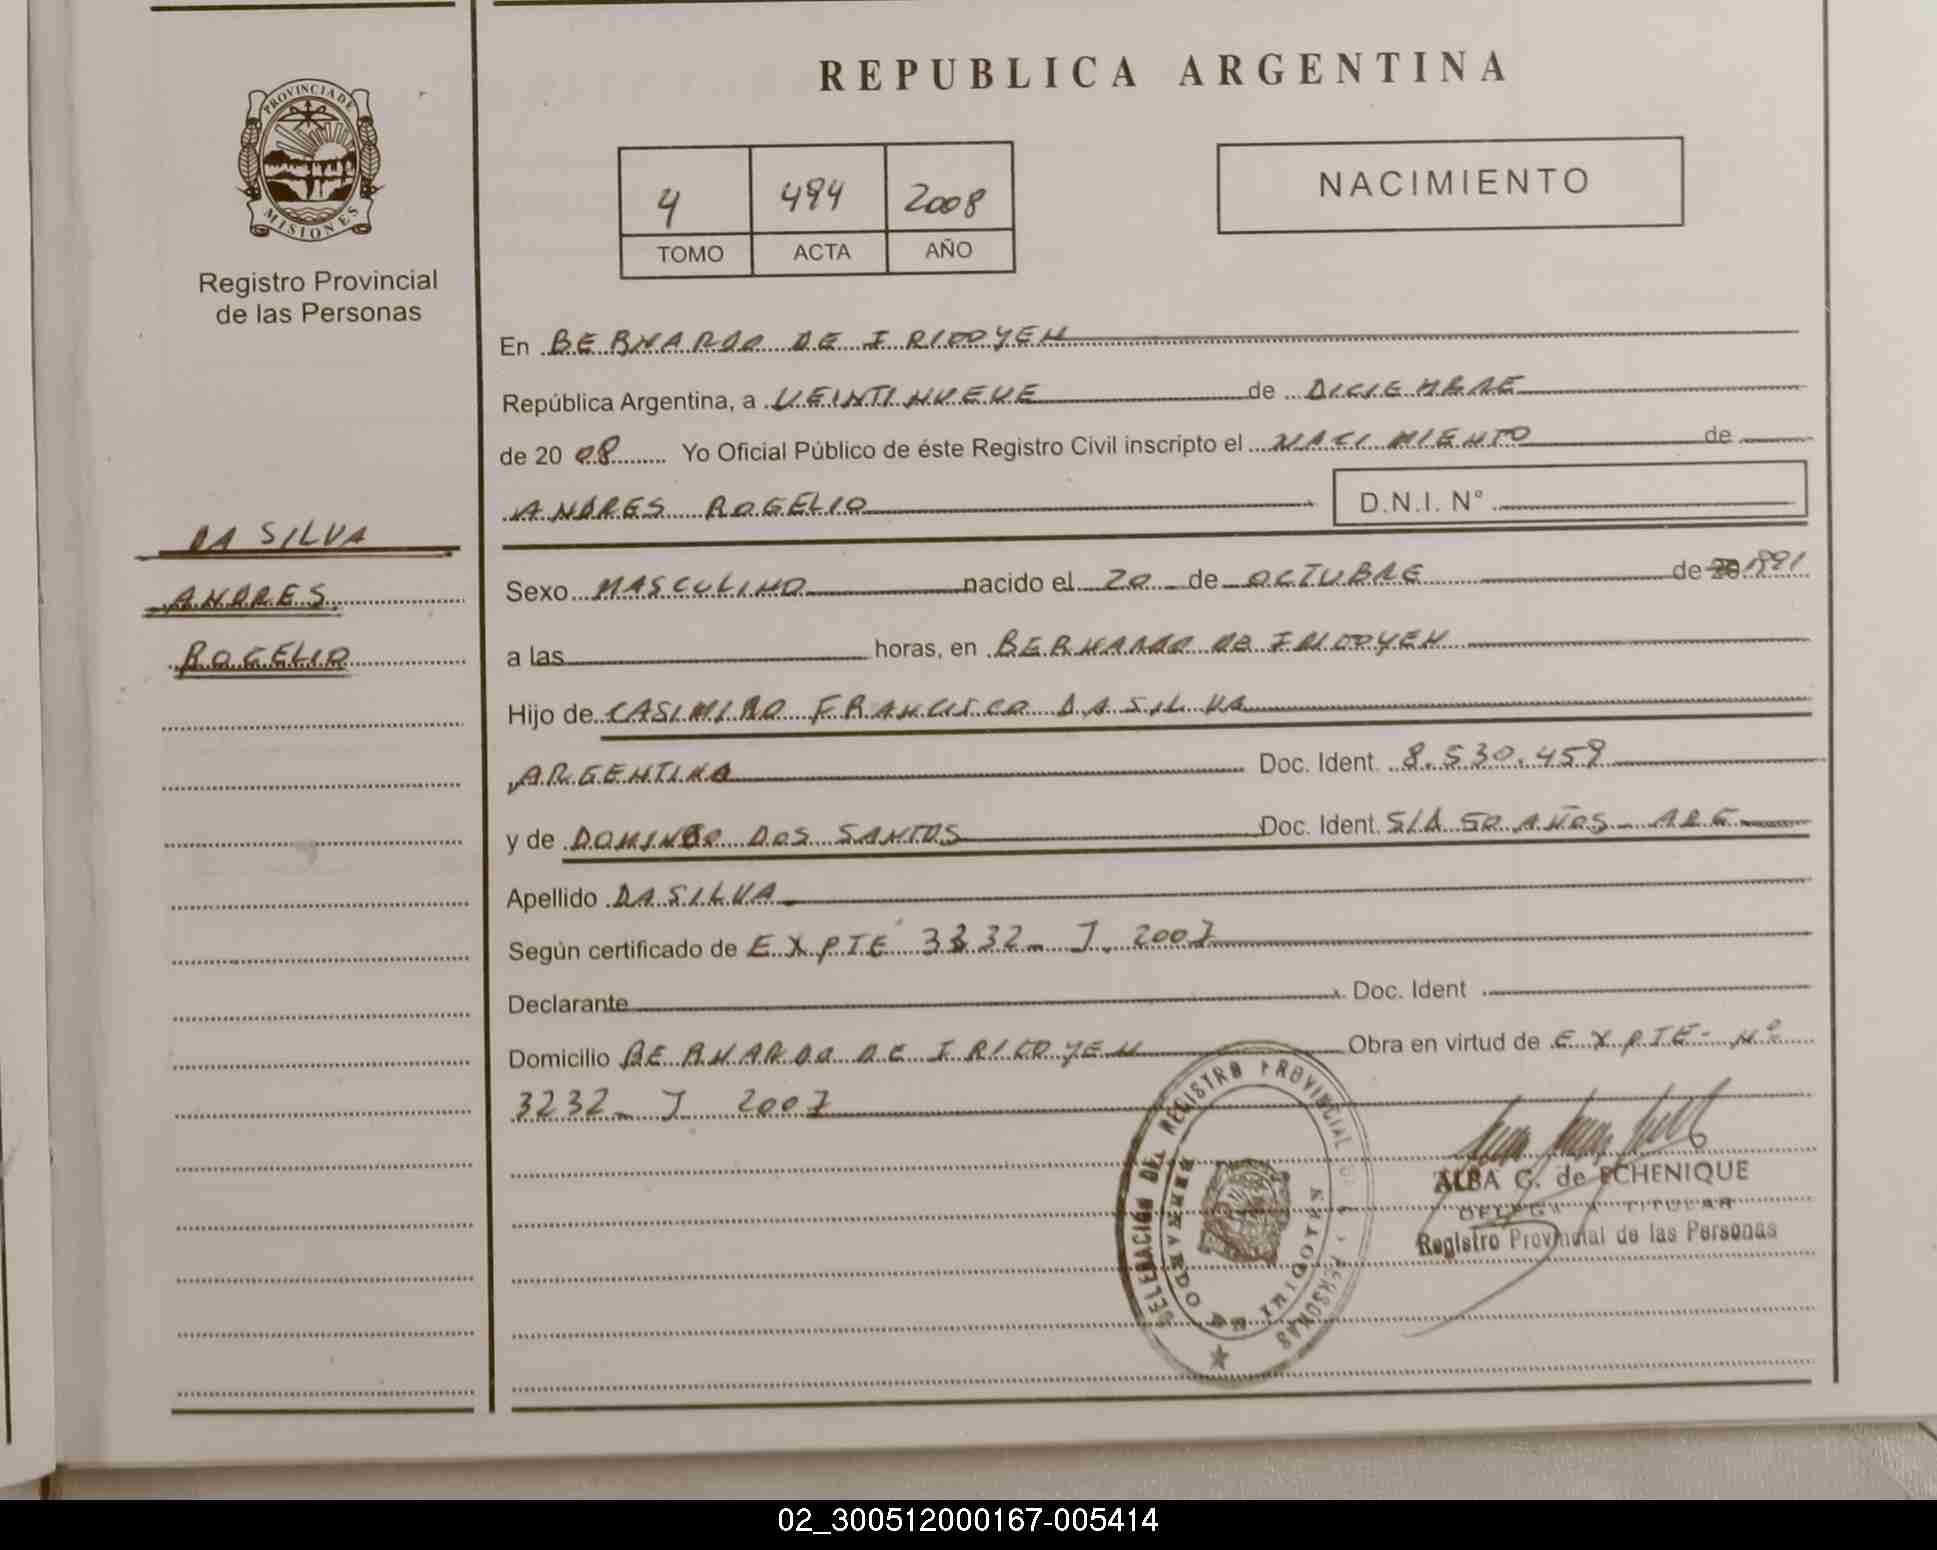 REPUBLICA ARGENTINA
PROVINCIA DE
MISIONES
Registro Provincial
de las Personas
4 494 2008
TOMO ACTA AÑO
NACIMIENTO
En BERNARDO DE IRIGOYEN
República Argentina, a VEINTINUEVE de DICIEMBRE
de 20 08 Yo Oficial Público de éste Registro Civil inscripto el NACIMIENTO de
ANDRES ROGELIO D.N.I. N°
DA SILVA
ANDRES
ROGELIO
Sexo MASCULINO nacido el 20 de OCTUBRE de 20 1991
a las horas, en BERNARDO DE IRIGOYEN
Hijo de CASIMIRO FRANCISCO DA SILVA
ARGENTINO Doc. Ident. 8.530.459
y de DOMINGO DOS SANTOS Doc. Ident. S/D 50 AÑOS - ARG
Apellido DA SILVA
Según certificado de EXPTE 3232 - J. 2007
Declarante Doc. Ident
Domicilio BERNARDO DE IRIGOYEN Obra en virtud de EXPTE - N°
3232 - J 2007
DELEGACIÓN DEL REGISTRO PROVINCIAL DE LAS PERSONAS
BERNARDO DE IRIGOYEN
ALBA G. de ECHENIQUE
DELEGADA TITULAR
Registro Provincial de las Personas
02_300512000167-005414